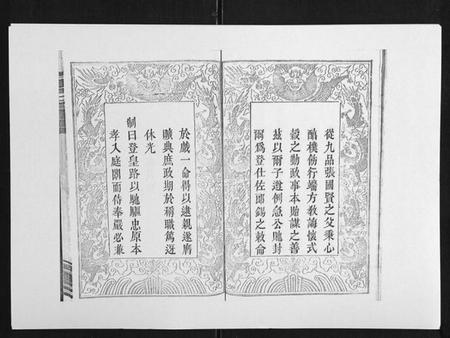 從九品張國賢之父秉心
醕樸飭行端方敎誨懷式
穀之勤政事本貽謀之善
茲以爾子遵例急公貤封
爾爲登仕佐郎錫之敕命
於戲一命得以逮親遂膺
曠典庶政期於稱職篤迓
休光
制曰登皇路以馳驅忠原本
孝入庭闈而侍奉嚴必兼